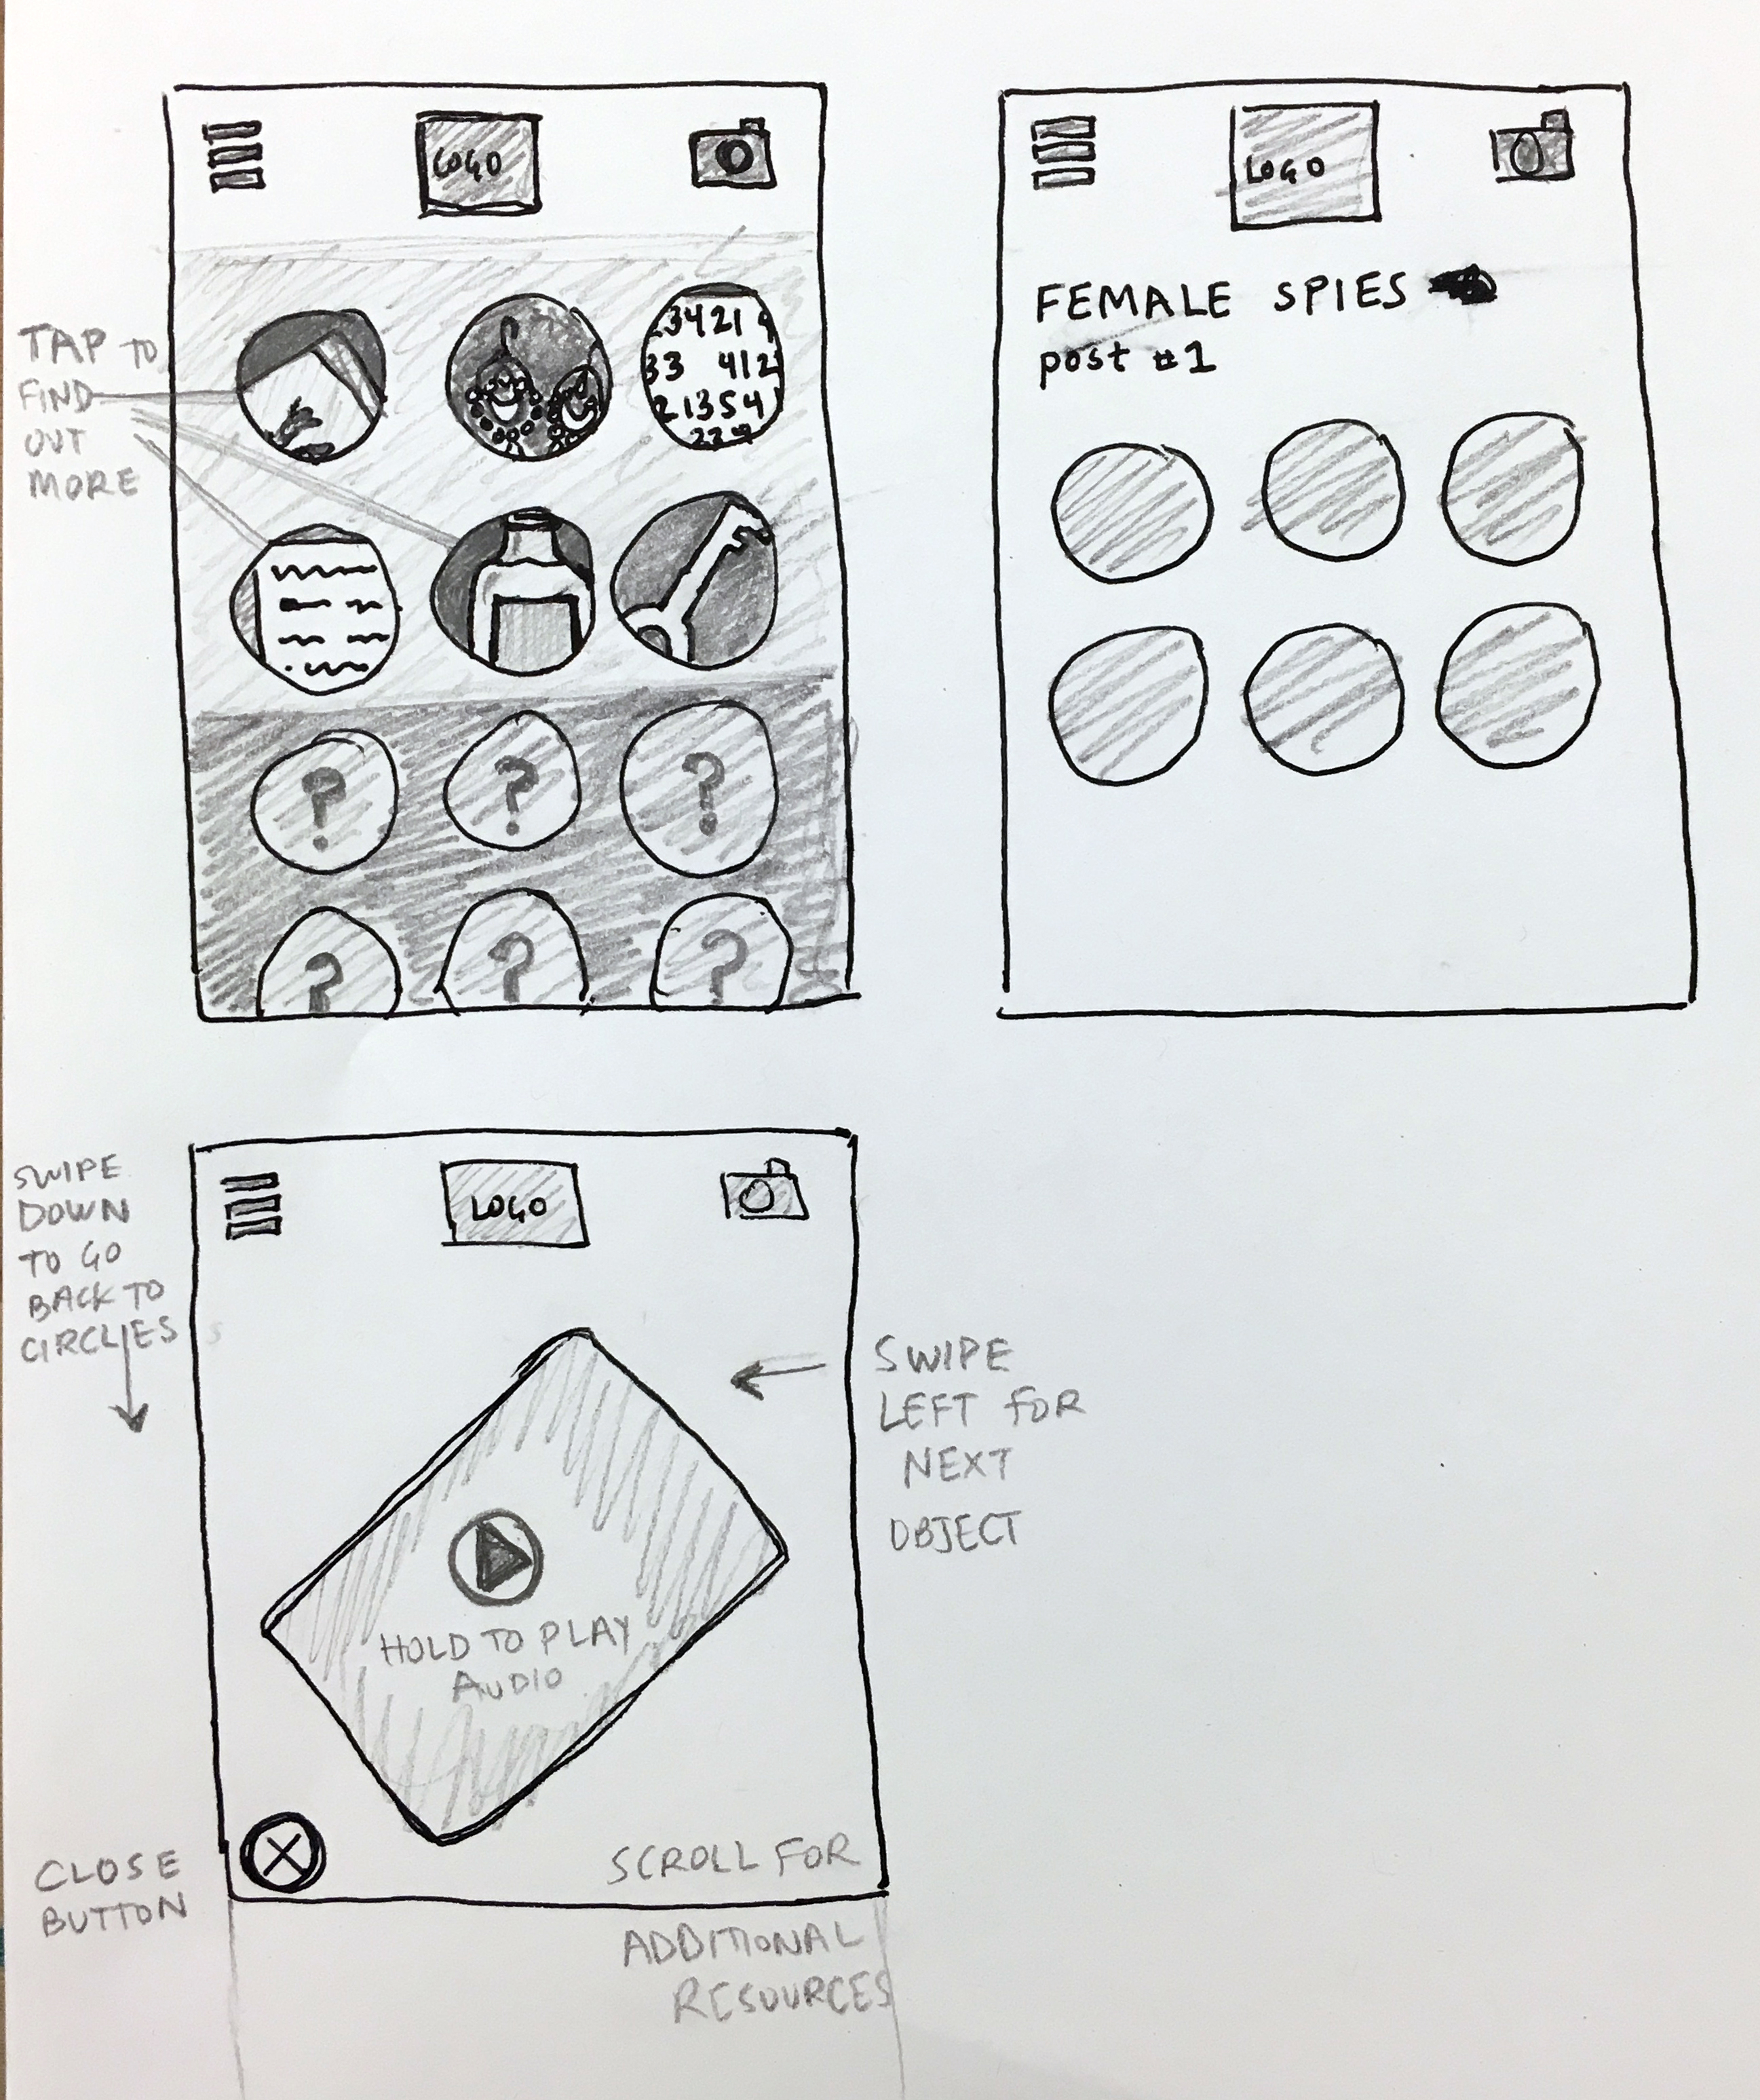 LOGO
TAP TO
FIND
OUT
MORE
3421
33 412
21354
?
?
?
?
?
?
LOGO
FEMALE SPIES
post #1
SWIPE
DOWN
TO GO
BACK TO
CIRCLES
LOGO
SWIPE
LEFT FOR
NEXT
OBJECT
HOLD TO PLAY
AUDIO
CLOSE
BUTTON
SCROLL FOR
ADDITIONAL
RESOURCES